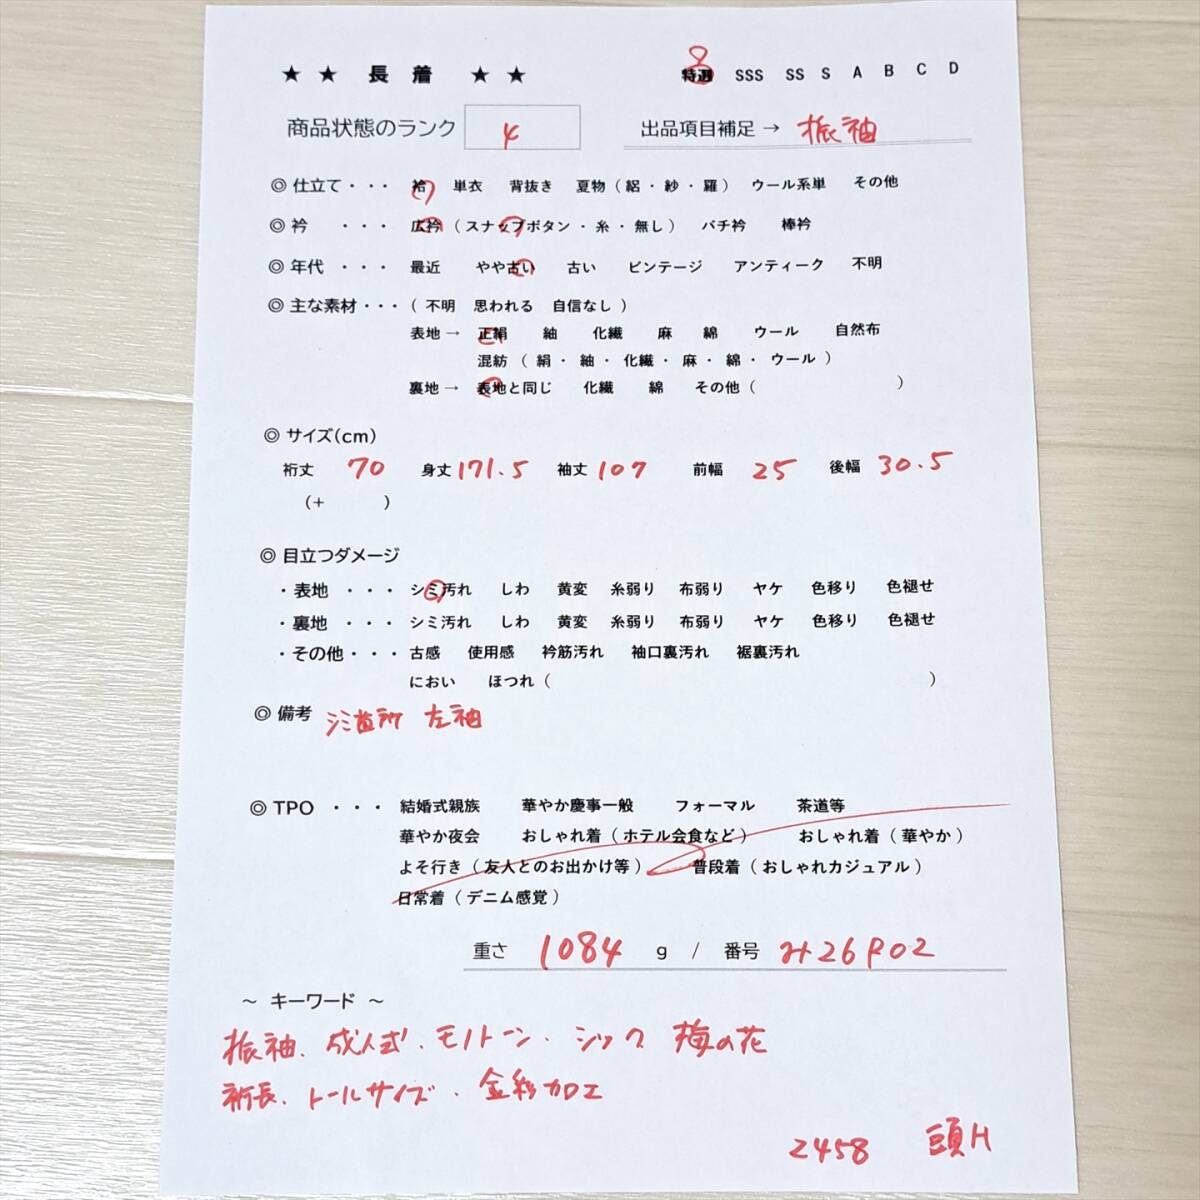 ★ ★ 長 着 ★ ★ 特選 SSS SS S A B C D
商品状態のランク 4 出品項目補足 → 振袖
◎ 仕立て・・・ 袷 単衣 背抜き 夏物 ( 絽 ・ 紗 ・ 羅 ) ウール系単 その他
◎ 衿 ・・・ 広衿 ( スナップボタン ・ 糸 ・ 無し ) バチ衿 棒衿
◎ 年代 ・・・ 最近 やや古い 古い ビンテージ アンティーク 不明
◎ 主な素材・・・ ( 不明 思われる 自信なし )
表地 → 正絹 紬 化繊 麻 綿 ウール 自然布
混紡 ( 絹 ・ 紬 ・ 化繊 ・ 麻 ・ 綿 ・ ウール )
裏地 → 表地と同じ 化繊 綿 その他 ( )
◎ サイズ(cm)
裄丈 70 身丈 171.5 袖丈 107 前幅 25 後幅 30.5
(+ )
◎ 目立つダメージ
・表地 ・・・ シミ汚れ しわ 黄変 糸弱り 布弱り ヤケ 色移り 色褪せ
・裏地 ・・・ シミ汚れ しわ 黄変 糸弱り 布弱り ヤケ 色移り 色褪せ
・その他・・・ 古感 使用感 衿筋汚れ 袖口裏汚れ 裾裏汚れ
におい ほつれ ( )
◎ 備考 シミ箇所 左袖
◎ TPO ・・・ 結婚式親族 華やか慶事一般 フォーマル 茶道等
華やか夜会 おしゃれ着 ( ホテル会食など ) おしゃれ着 ( 華やか )
よそ行き ( 友人とのお出かけ等 ) 普段着 ( おしゃれカジュアル )
日常着 ( デニム感覚 )
重さ 1084 g / 番号 み26P02
～ キーワード ～
振袖、成人式、モノトーン、シック 梅の花
裄長、トールサイズ、金彩加工
2458